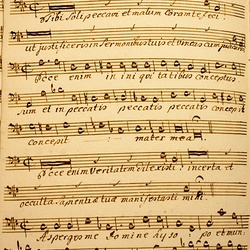 Tibi Soli peccavi et malum Coram te feci
ut justificeris in Sermonibus tuis et Vincas cum judicaris
Ecce enim in ini qui tatibus conceptus
sum et in peccatis peccatis peccatis concepit
concepit mater mea
Ecce enim Veritatem dilexisti incerta et
occulta sapientiæ tuæ manifestasti mihi
Asperges me Domine hyso po et mun